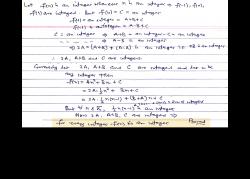 Let f(x) is an integer whenever x is an integer ⇒ f(-1), f(0),
f(1) are integers. But f(0) = C = an integer
f(1) = an integer = A+B+C
f(-1) = an integer = A-B+C
C = an integer ⇒ A+B = an integer
A-B = an integer
⇒ 2A = (A+B) + (A-B) = an integer
∴ 2A, A+B and C are integers.
Conversely let 2A, A+B and C are integers and let n be
any integer then
f(n) = An² + Bn + C
= 2A · ½ n(n-1) + (B+A)n + C
But ∀ n ∈ Z, ½ n(n-1) is an integer
Now 2A, A+B and C are integers ⇒
for every integer f(n) is an integer Proved